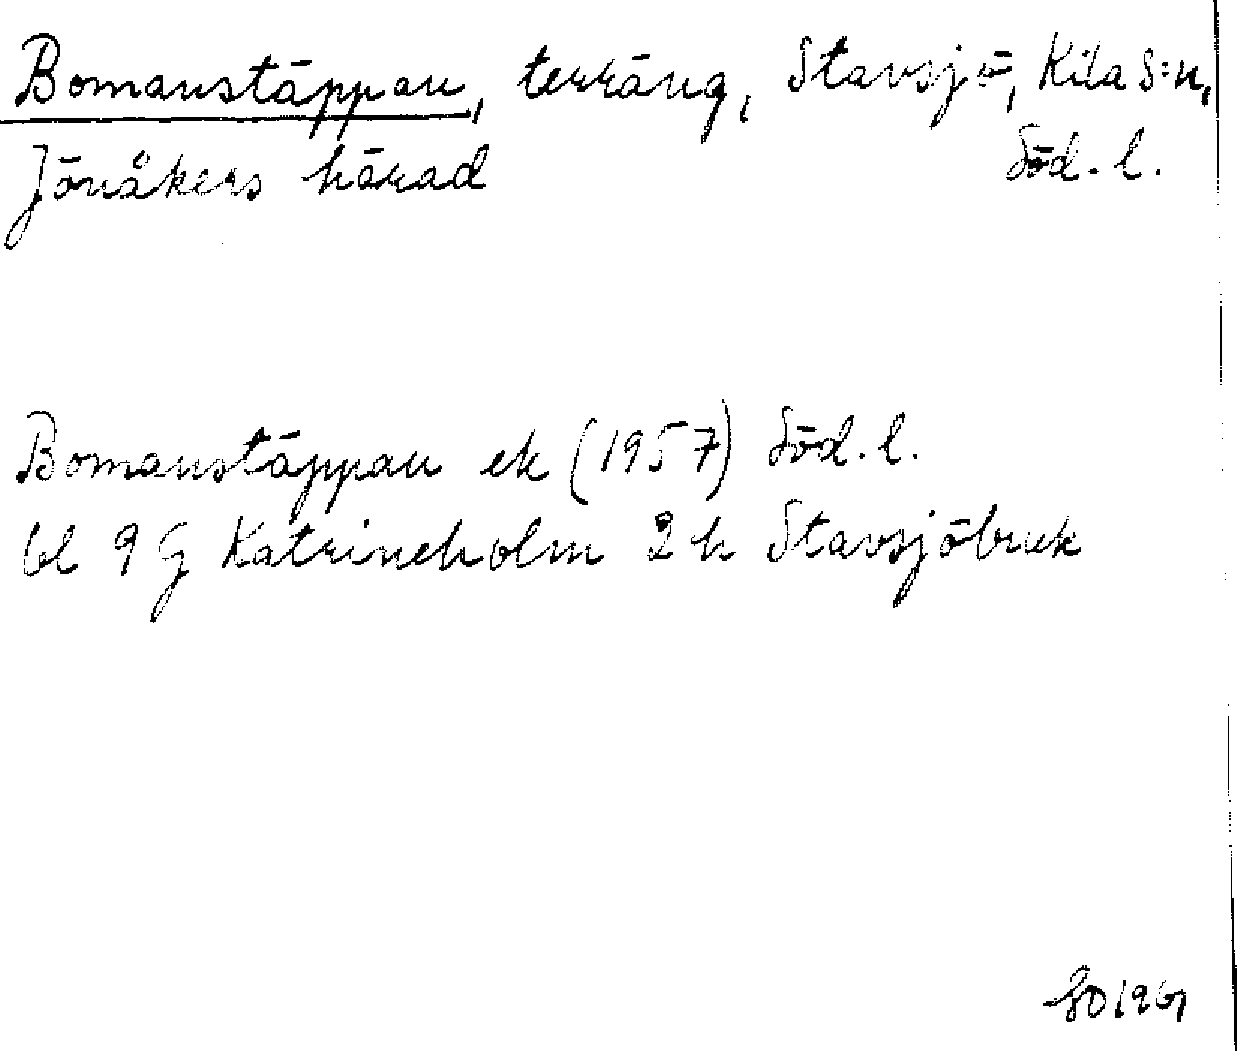 Bomanstäppan, terräng, Stavsjö, Kila S:n,
Jönåkers härad Söd. l.
Bomanstäppan ek (1957) Söd. l.
bl 9 G Katrineholm 2 h Stavsjöbruk